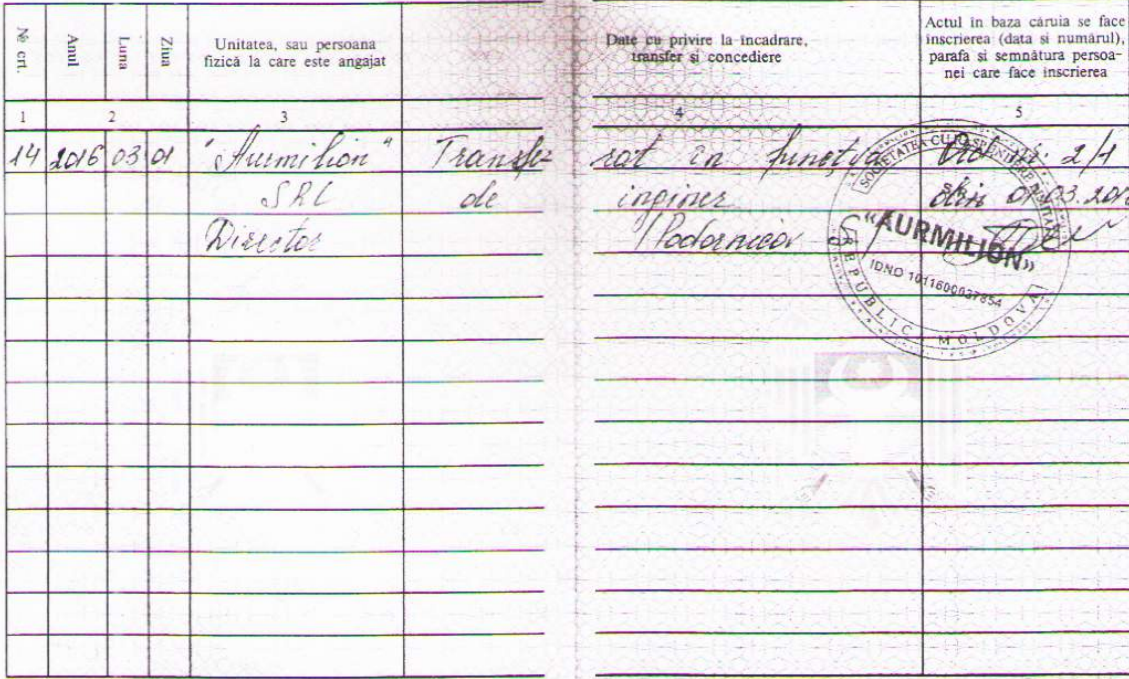 № crt.
Anul
Luna
Ziua
Unitatea, sau persoana
fizică la care este angajat
Date cu privire la încadrare,
transfer și concediere
Actul în baza căruia se face
înscrierea (data si numărul),
parafa și semnătura persoa-
nei care face înscrierea
1 2 3 4 5
14 2016 03 01 "Aurmilion" Transfe- rat în funcția 2/1
SRL de inginer din 01.03.2016
Director
SOCIETATEA CU RĂSPUNDERE LIMITATĂ
«AURMILION»
IDNO 1011600037854
REPUBLICA MOLDOVA